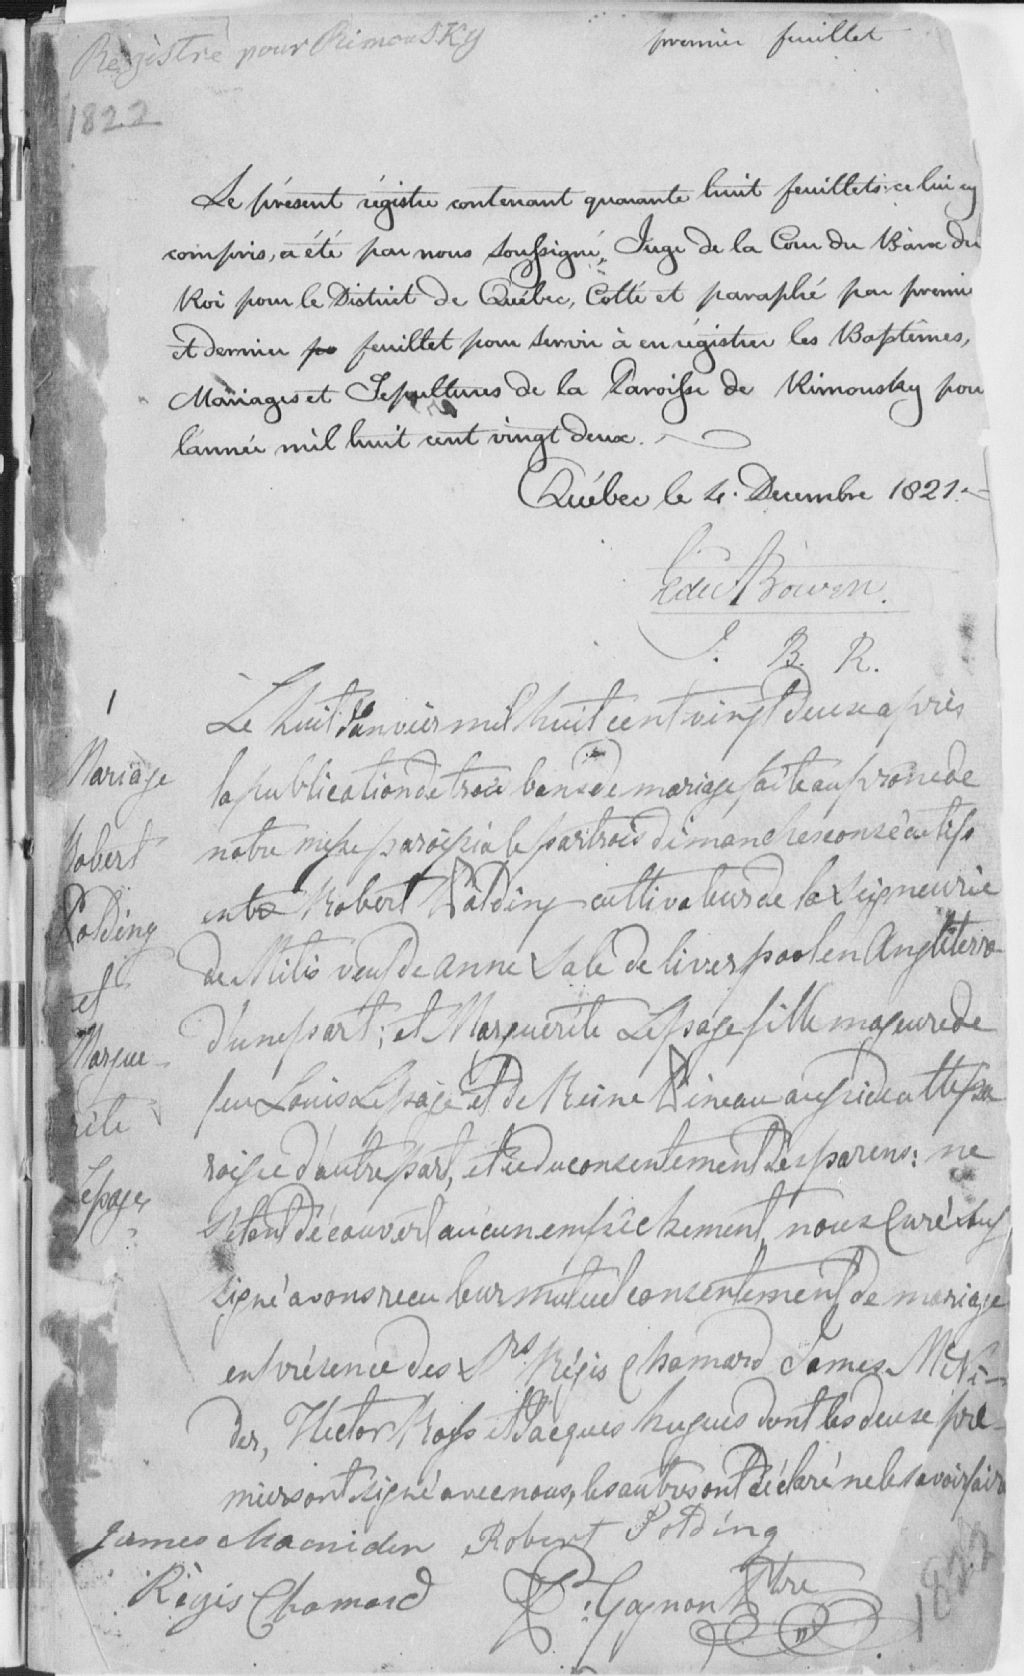 Régistre pour Rimousky
premier feuillet
1822
Le présent régistre contenant quarante huit feuillets, celui cy
compris, a été par nous Soussigné, Juge de la Cour du Banc du
Roi pour le District de Québec, Cotté et paraphé par premier
et dernier feuillet pour servir à enrégistrer les Baptêmes,
Mariages et Sepultures de la Paroisse de Rimousky pour
l'année mil huit cent vingt deux.
Québec le 4. Decembre 1821.
Edw Bowen.
J. B. R.
1
Mariage
Robert
Polding
et
Margue-
rite
Lepage
Le huit Janvier mil huit cent vingt deux après
la publication de trois bans de mariage faite au prone de
notre messe paroissiale par trois dimanches consécutifs
entre Robert Polding cultivateur de la Seigneurie
de Mitis veuf de anne Sale de liverpool en Angleterre
d'une part; et Marguerite Lepage fille mageure de
feu Louis Lepage et de Reine Pineau aussi de cette pa
roisse d'autre part, et du consentement des parens: ne
s'etant découvert aucun empêchement, nous Curé sous
signé avons recu leur mutuel consentement de mariage
en présence des Srs Régis Chamard James McNi-
der, Hector Ross et Jacques hugues dont les deux pre-
miers ont signé avec nous, les autres ont déclaré ne le savoir faire
James Macnider Robert Polding
Régis Chamard P. Gagnon Ptre
1822